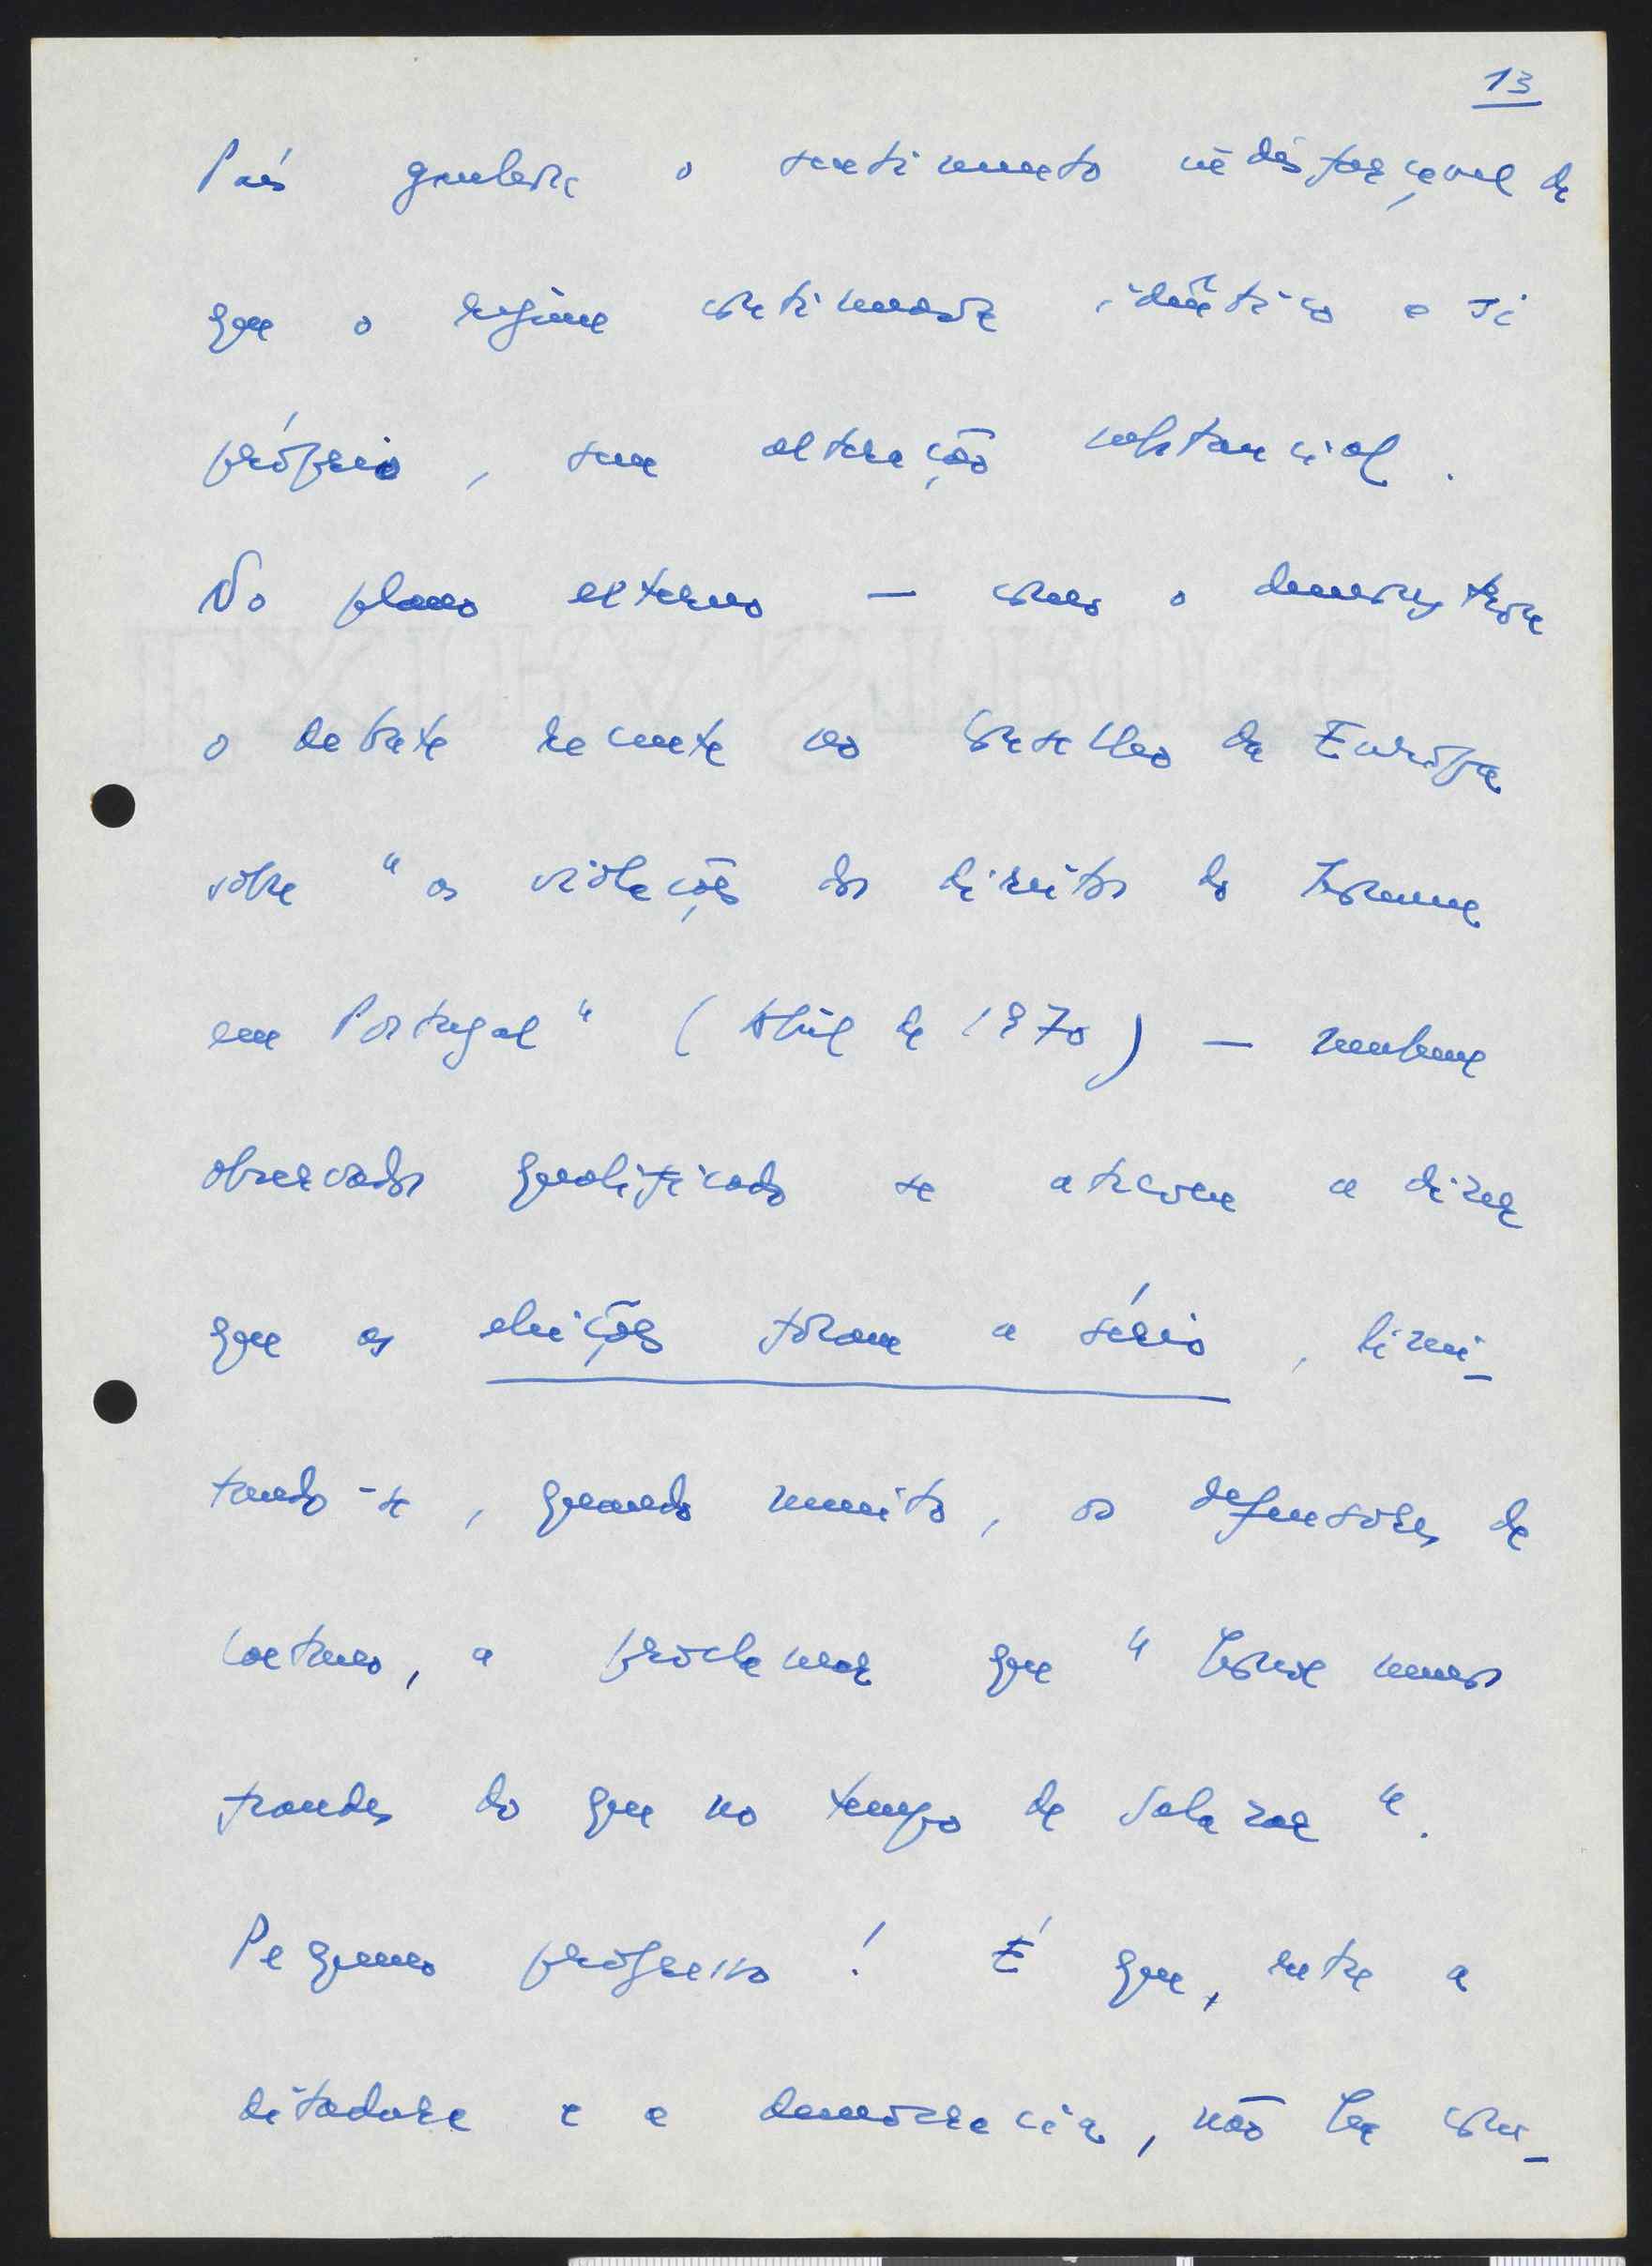 13
País ganhara o sentimento indisfarçável de
que o regime continuava idêntico a si
próprio, sem alteração substancial.
No plano externo — como o demonstrou
o debate recente no Conselho da Europa
sobre "as violações dos direitos do homem
em Portugal" (Abril de 1970) — nenhum
observador qualificado se atreveu a dizer
que as eleições foram a sério, limi-
tando-se, quando muito, os defensores de
Caetano, a proclamar que "houve menos
fraudes do que no tempo de Salazar".
Pequeno progresso! É que, entre a
ditadura e a democracia, não há